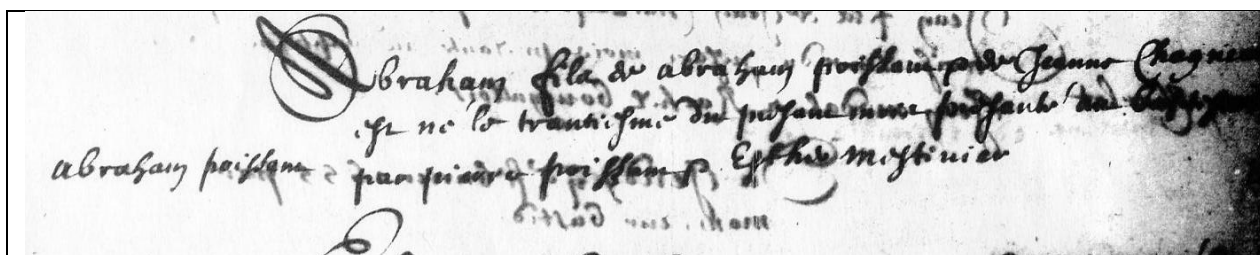 Abraham fils de abraham poissant & de Jeanne Chagnieau
est né le trantiesme du presant mois presante au baptesme
abraham poissant
par pierre poissant & Esther mestivier